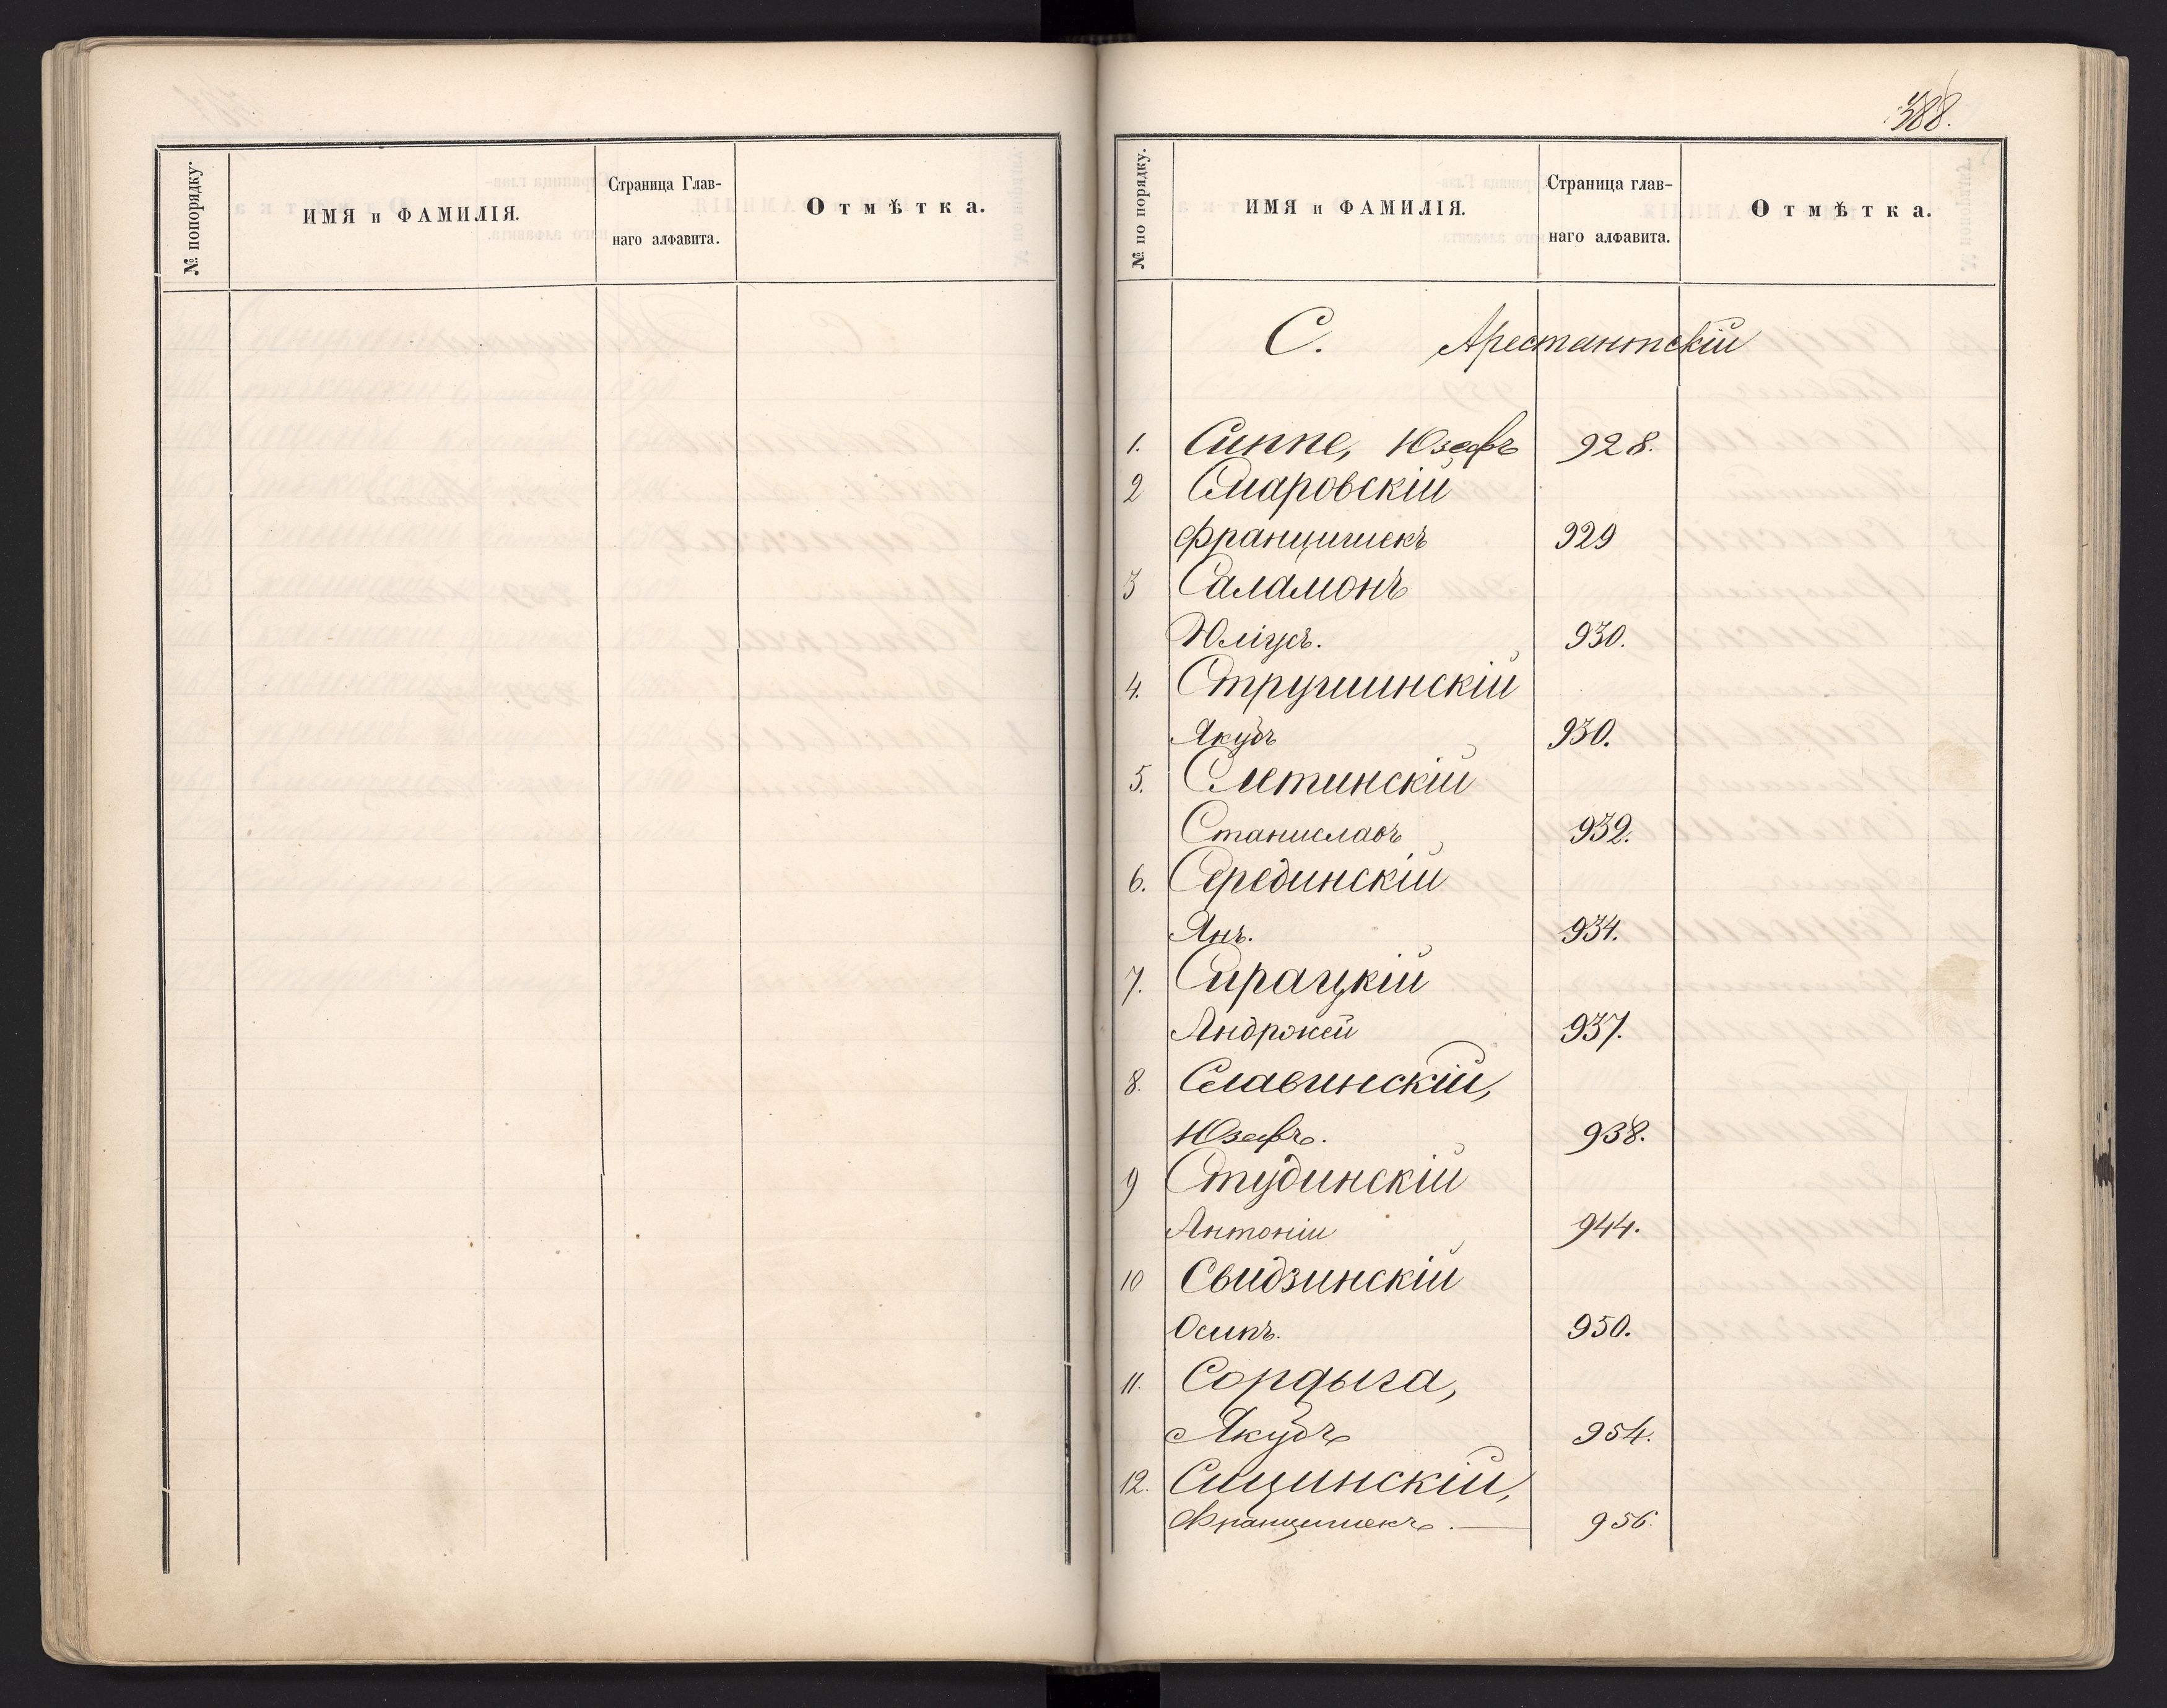 № попорядку.
ИМЯ и ФАМИЛІЯ.
Страница Глав-
наго алфавита.
Отмѣтка.
388.
№ по порядку.
ИМЯ и ФАМИЛІЯ.
Страница глав-
наго алфавита.
Отмѣтка.
С. Арестантскій
1. Сиппе, Юзефъ 928.
2 Смаровскій
Францишекъ 929
3 Саламонъ
Юліусъ. 930.
4. Стružинскій
Якубъ 930.
5. Сметинскій
Станиславъ 932.
6. Серединскій
Янъ. 934.
7. Сирацкій
Андржей 937.
8. Славинскій,
Юзефъ. 938.
9 Студинскій
Антоній 944.
10 Свидзинскій
Осипъ. 950.
11. Сордыга,
Якубъ 954.
12. Сицинскій,
Францишекъ. — 956.